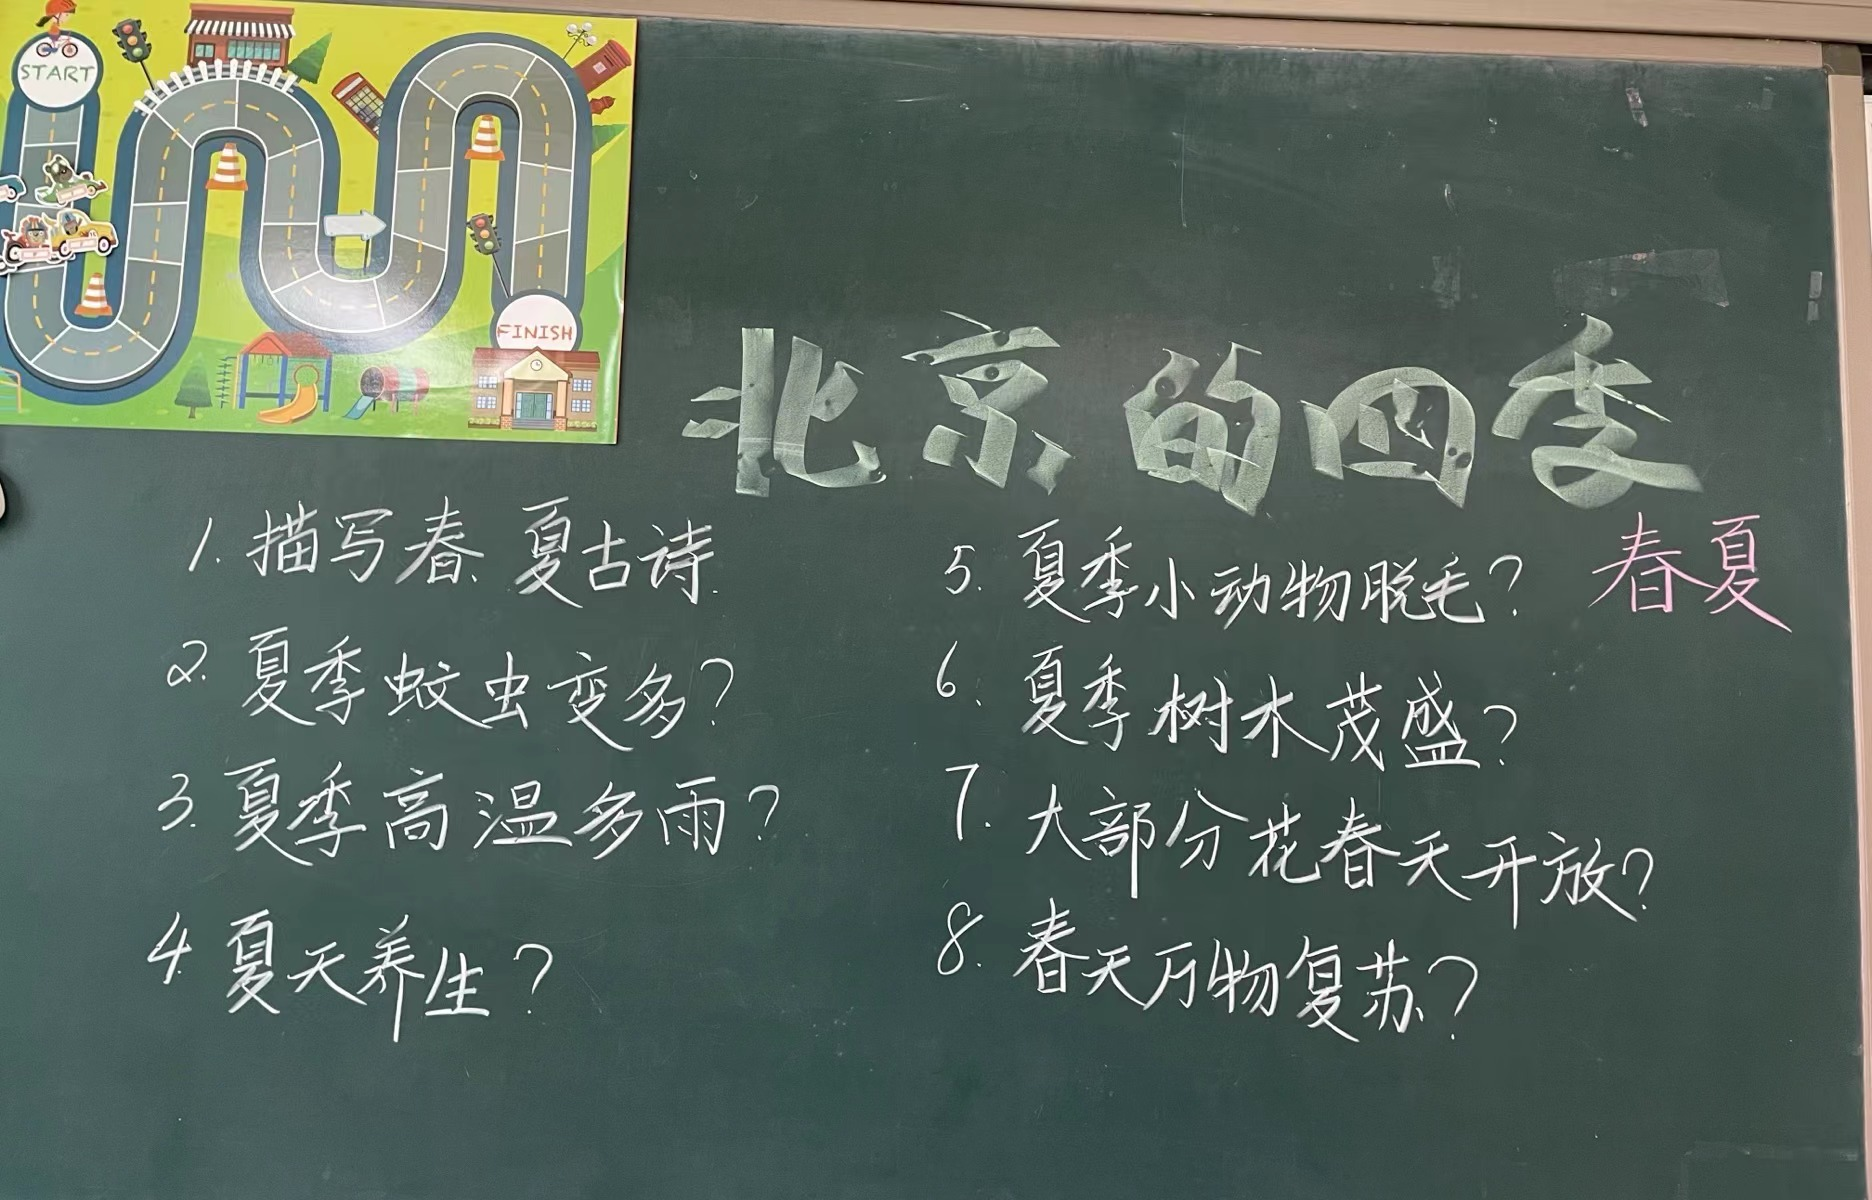 START
FINISH
北京的四季
春夏
1. 描写春、夏古诗
2. 夏季蚊虫变多?
3. 夏季高温多雨?
4. 夏天养生?
5. 夏季小动物脱毛?
6. 夏季树木茂盛?
7. 大部分花春天开放?
8. 春天万物复苏?